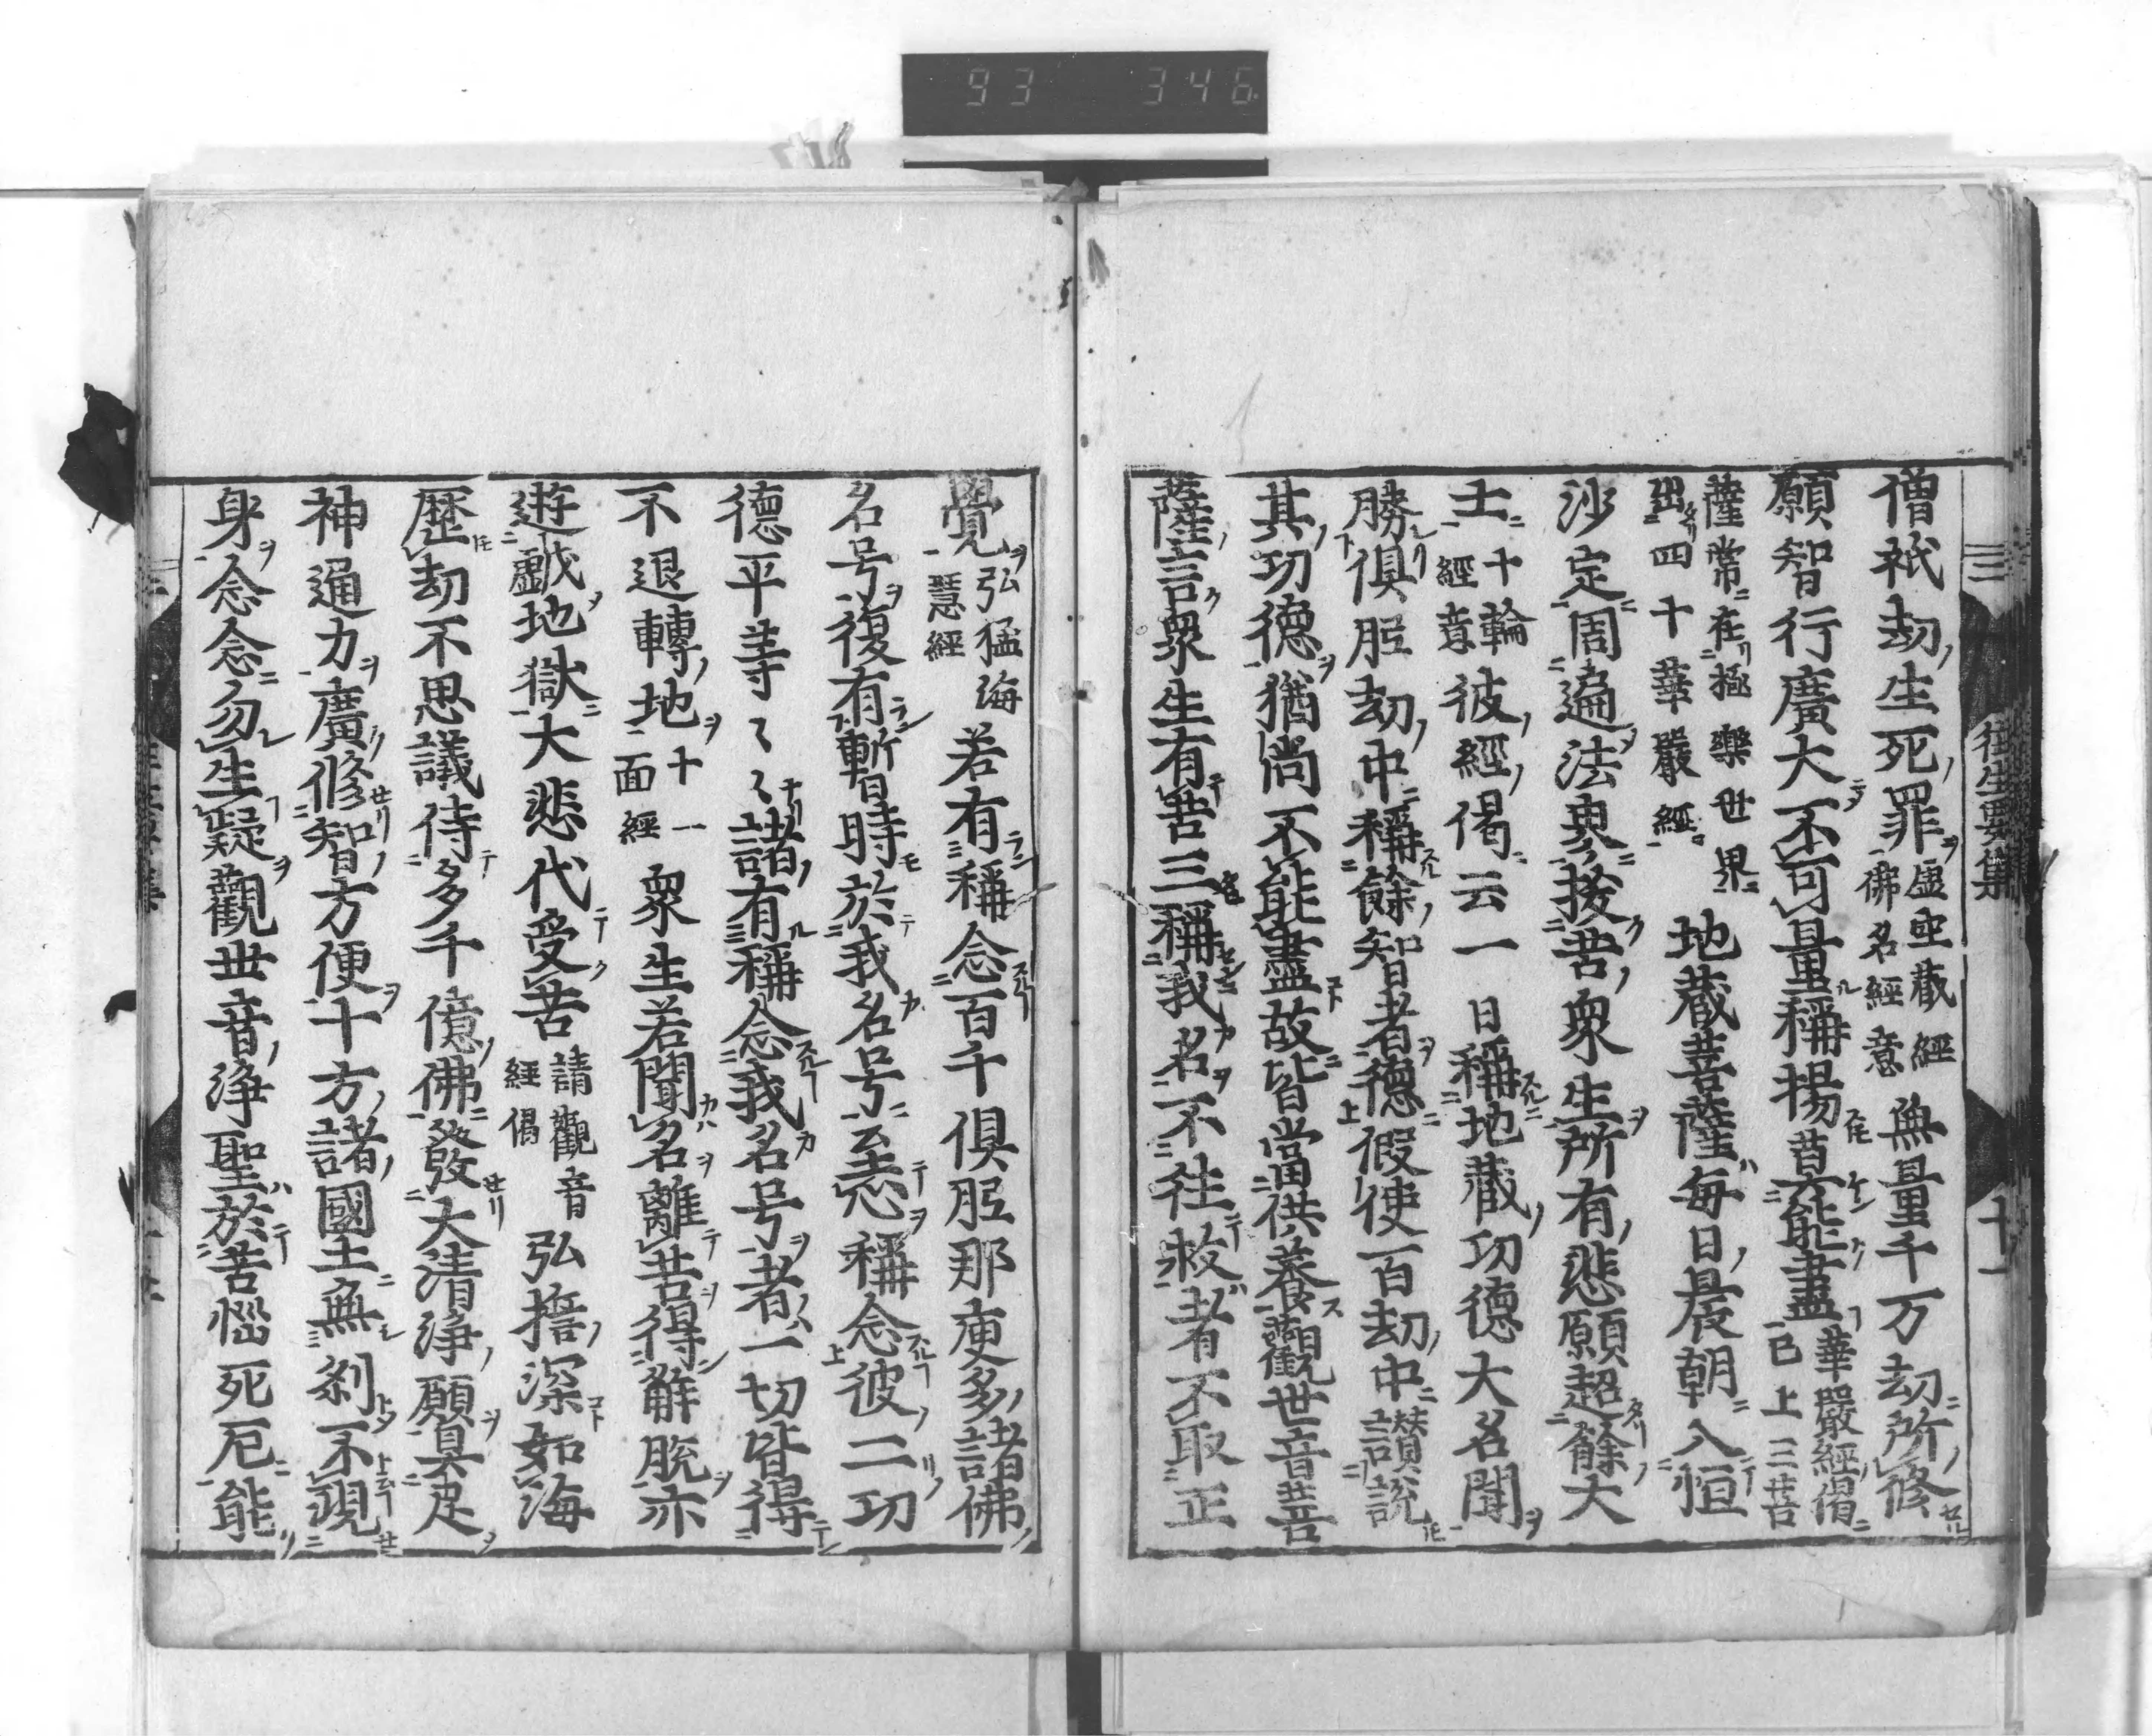 93 346
往生要集
十一
僧祇劫生死罪虚空蔵經佛名經意無量千万劫所修
願智行廣大不可量稱揚莫能盡華嚴經偈已上三菩
薩常在極樂世界出四十華嚴經地蔵菩薩毎日晨朝入恒
沙定周遍法界拔苦衆生所有悲願超餘大
士十輪經意彼經偈云一日稱地蔵功德大名聞
勝俱胝劫中稱餘智者德假使百劫中讃説
其功德猶尚不能盡故皆當供養觀世音菩
薩言衆生有苦三稱我名不往救者不取正
覺弘猛海慧經若有稱念百千俱胝那庾多諸佛
名号復有暫時於我名号至心稱念彼二功
德平等々々諸有稱念我名号者一切皆得
不退轉地十一面經衆生若聞名離苦得解脱亦
遊戯地獄大悲代受苦請觀音經偈弘誓深如海
歴劫不思議侍多千億佛發大清淨願具足
神通力廣修智方便十方諸國土無刹不現
身念念勿生疑觀世音淨聖於苦惱死厄能